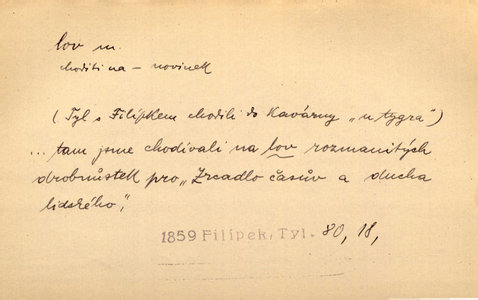 lov m.
choditi na – novinek
(Tyl s Filípkem chodili do kavárny „u tygra“)
... tam jsme chodívali na lov rozmanitých
drobnůstek pro „Zrcadlo časův a ducha
lidského“,
1859 Filípek, Tyl. 80, 18,